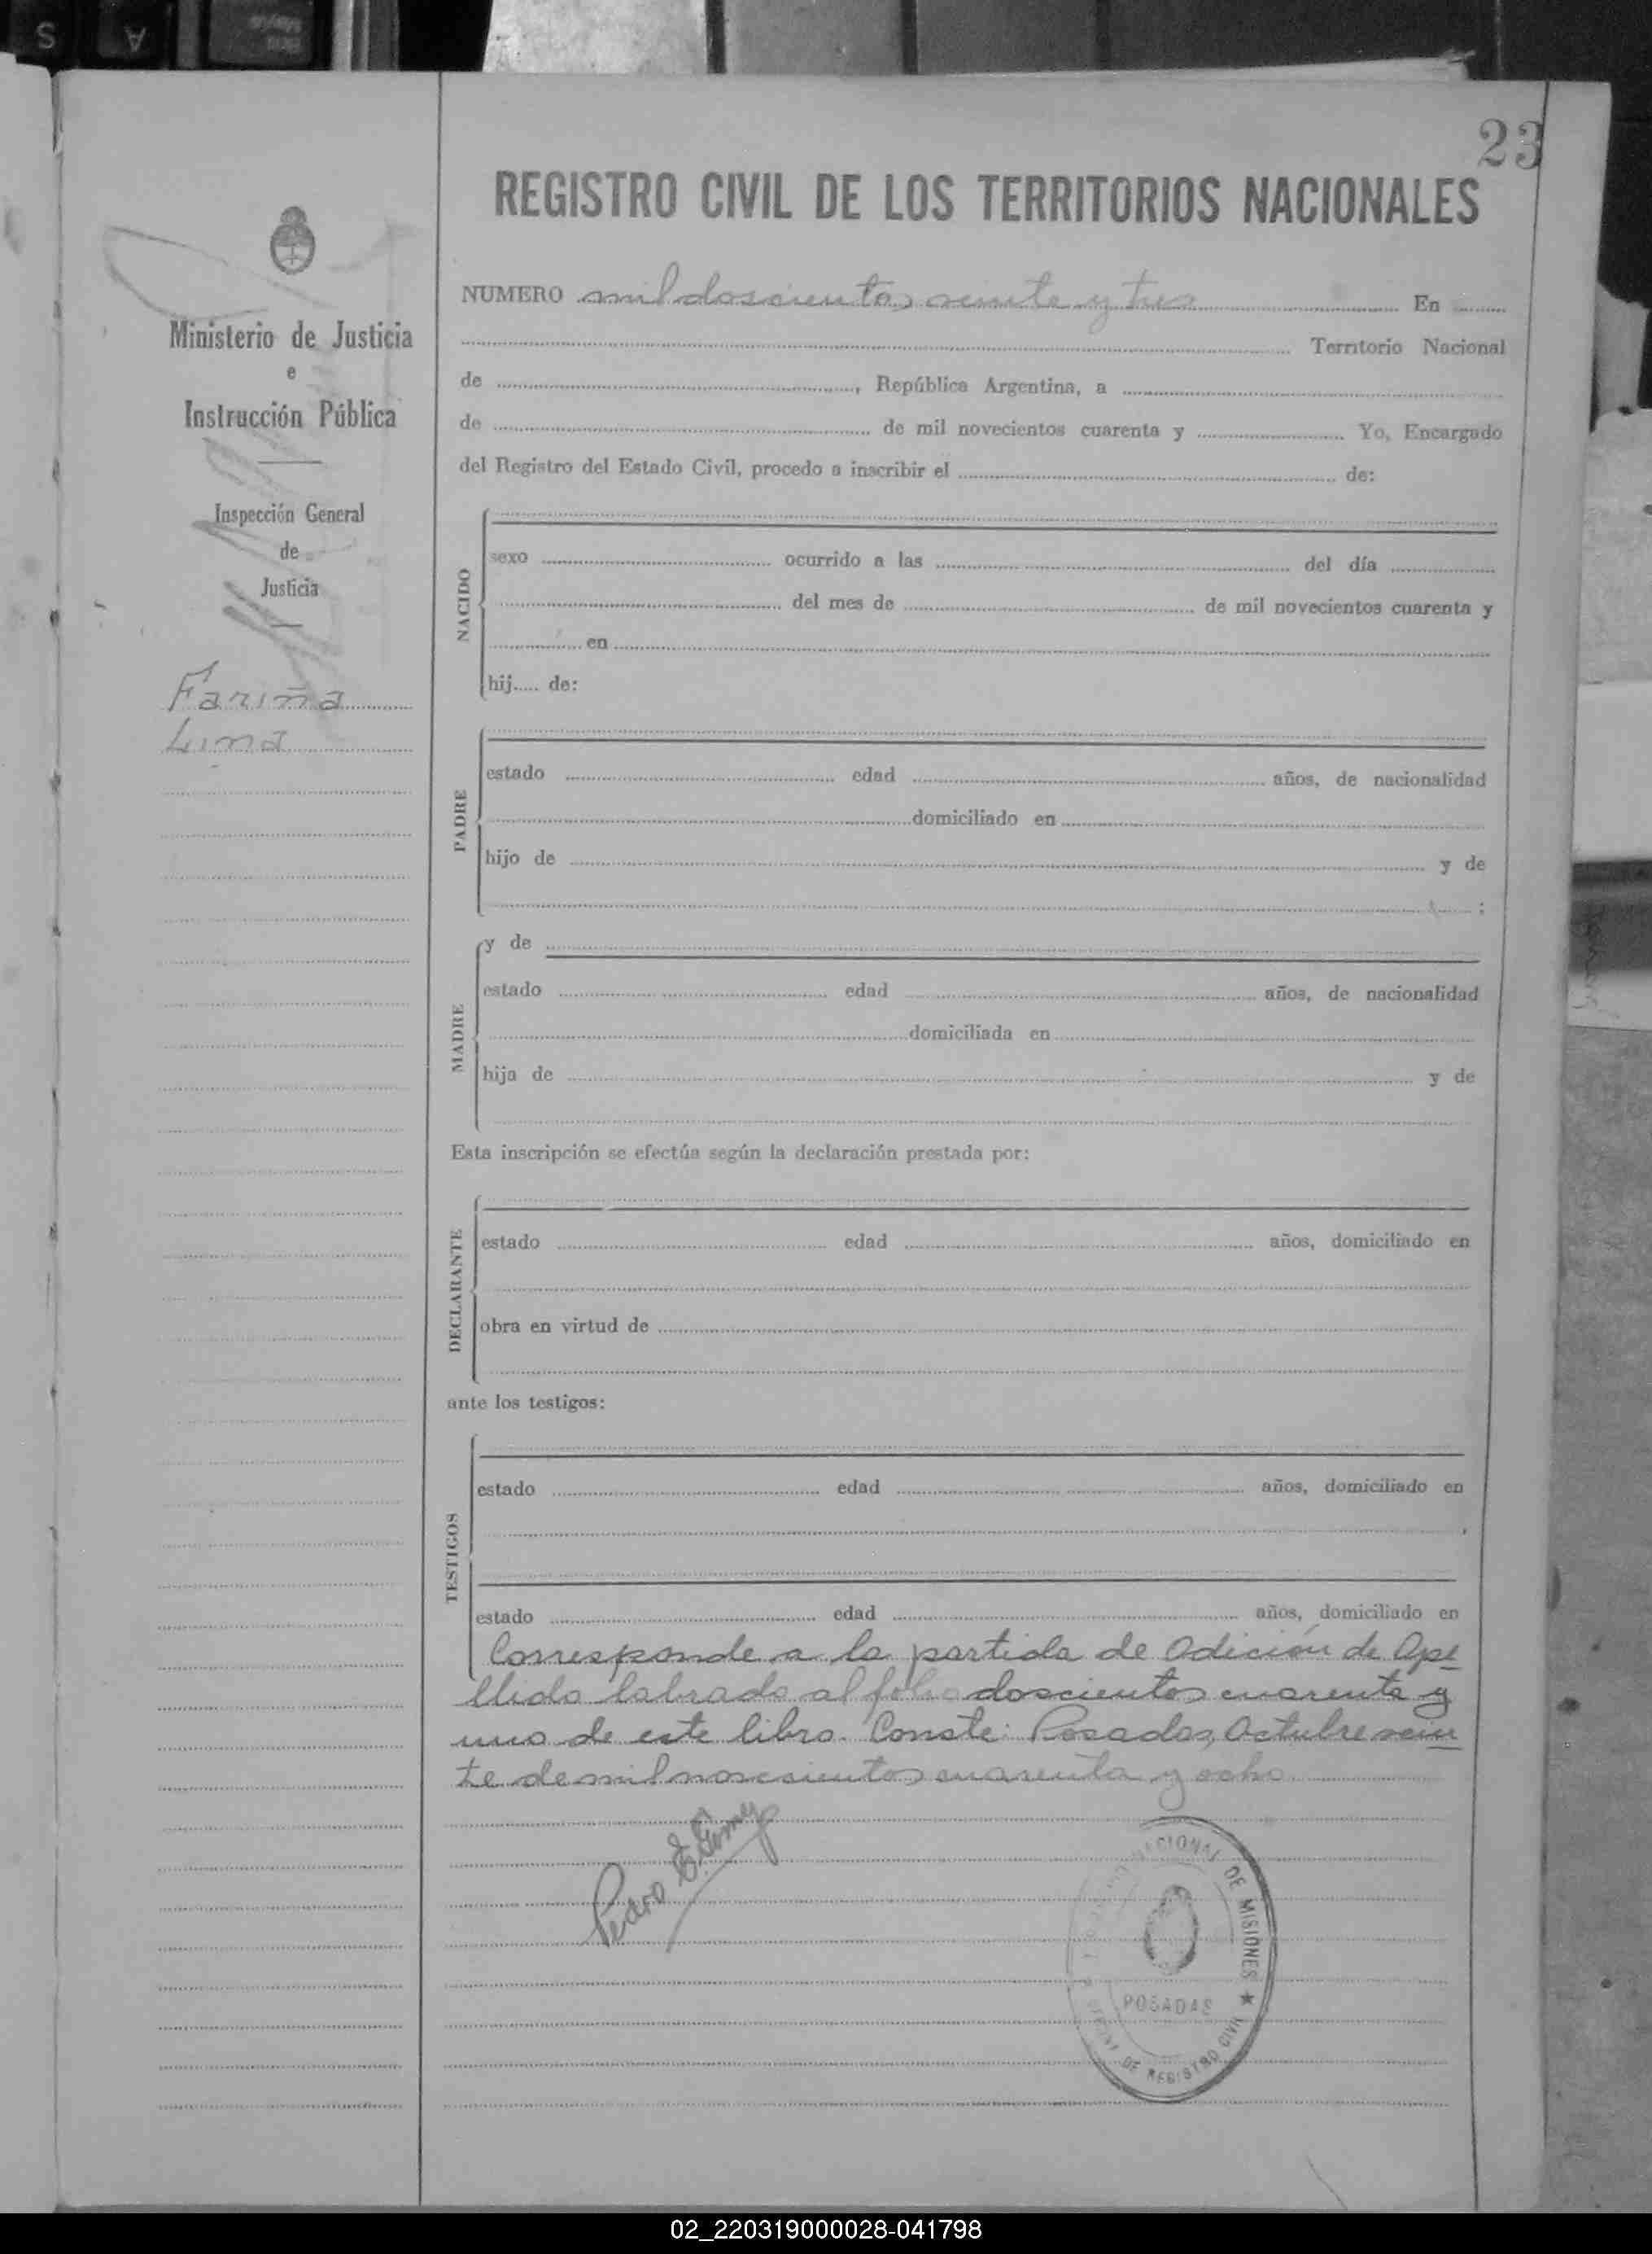 23
REGISTRO CIVIL DE LOS TERRITORIOS NACIONALES
Ministerio de Justicia
e
Instrucción Pública
Inspección General
de
Justicia
Fariña
Lima
NUMERO mil doscientos veinte y tres En
Territorio Nacional
de , República Argentina, a
de de mil novecientos cuarenta y Yo, Encargado
del Registro del Estado Civil, procedo a inscribir el de:
NACIDO
sexo ocurrido a las del día
del mes de de mil novecientos cuarenta y
en
hij..... de:
PADRE
estado edad años, de nacionalidad
domiciliado en
hijo de y de
;
MADRE
y de
estado edad años, de nacionalidad
domiciliada en
hija de y de
Esta inscripción se efectúa según la declaración prestada por:
DECLARANTE
estado edad años, domiciliado en
obra en virtud de
ante los testigos:
TESTIGOS
estado edad años, domiciliado en
estado edad años, domiciliado en
Corresponde a la partida de Adición de Ape
llido labrado al folio doscientos cuarenta y
uno de este libro. Conste: Posadas, Octubre vein
te de mil novecientos cuarenta y ocho
Pedro E. Gomez
NACIONAL DE MISIONES ★
POSADAS
DE REGISTRO CIVIL
02_220319000028-041798